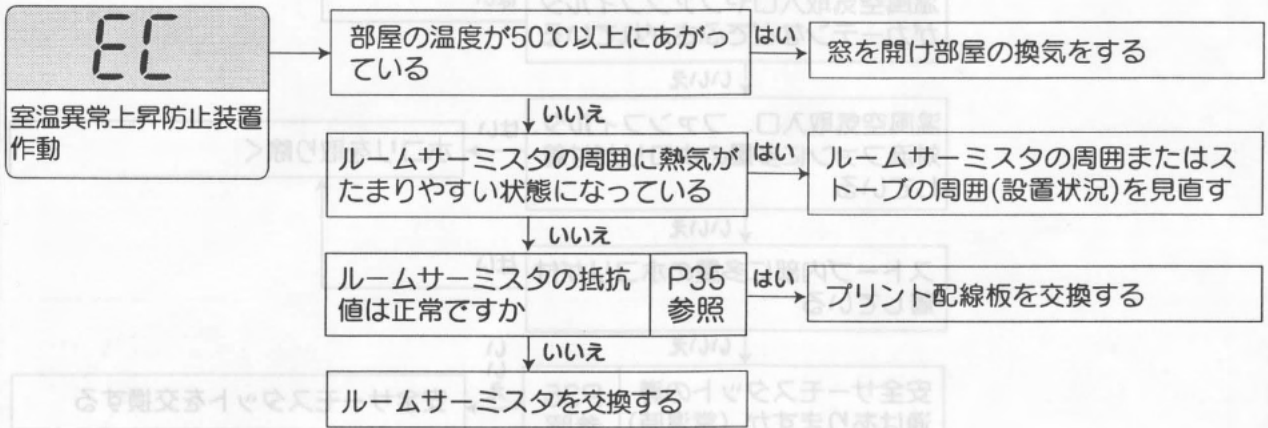 EC
室温異常上昇防止装置
作動
部屋の温度が50℃以上にあがっ
ている
はい
窓を開け部屋の換気をする
いいえ
ルームサーミスタの周囲に熱気が
たまりやすい状態になっている
はい
ルームサーミスタの周囲またはス
トーブの周囲(設置状況)を見直す
いいえ
ルームサーミスタの抵抗
値は正常ですか
P35
参照
はい
プリント配線板を交換する
いいえ
ルームサーミスタを交換する